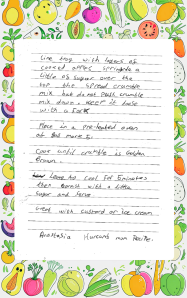 Line tray with layers of
cooked apples sprinkle a
little of sugar over the
top the spread crumble
mix but do not push crumble
mix down. Keep it loose
with a fork
Place in a pre-heated oven
at Gas mark
Cook until crumble is golden
brown.
Leave to cool for 5 minutes
then garnish with a little
sugar and serve
Serve with custard or ice cream
Anastasia mum Recipe.